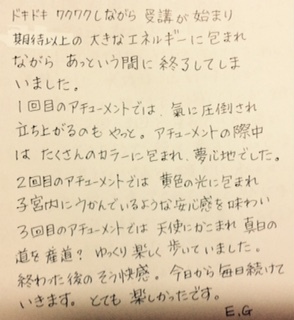 ドキドキ ワクワクしながら 受講が 始まり
期待以上の 大きなエネルギーに包まれ
ながら あっという間に 終了してしま
いました。
1回目のアチューメントでは、氣に圧倒され
立ち上がるのも やっと。アチューメントの際中
は たくさんのカラーに包まれ、夢心地でした。
2回目のアチューメントでは 黄色の光に包まれ
子宮内にうかんでいるような安心感を味わい
3回目のアチューメントでは 天使にかこまれ 真白の
道を産道? ゆっくり 楽しく 歩いていました。
終わった後のそう快感。今日から毎日続けて
いきます。とても 楽しかったです。
E.G